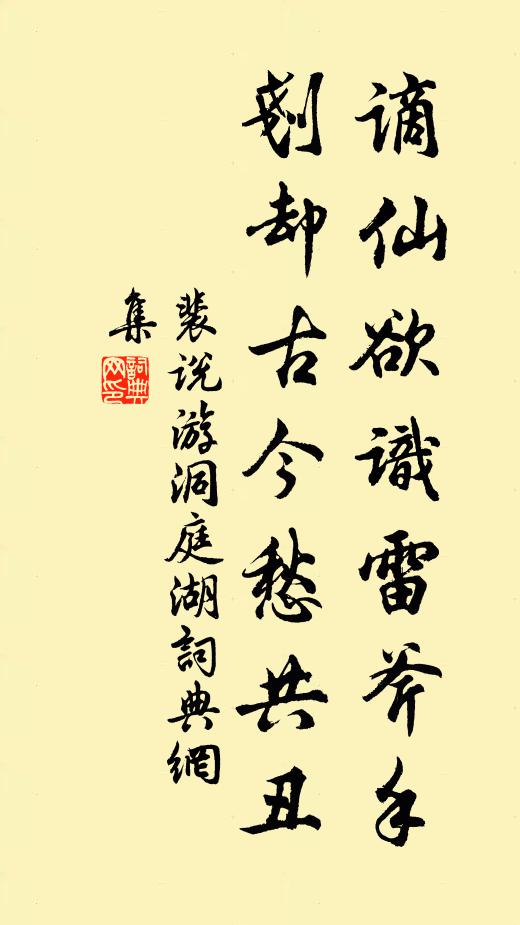 謫仙欲識雷斧手
剗却古今愁共丑
裴说游洞庭湖詞典網
集
詞典
网印